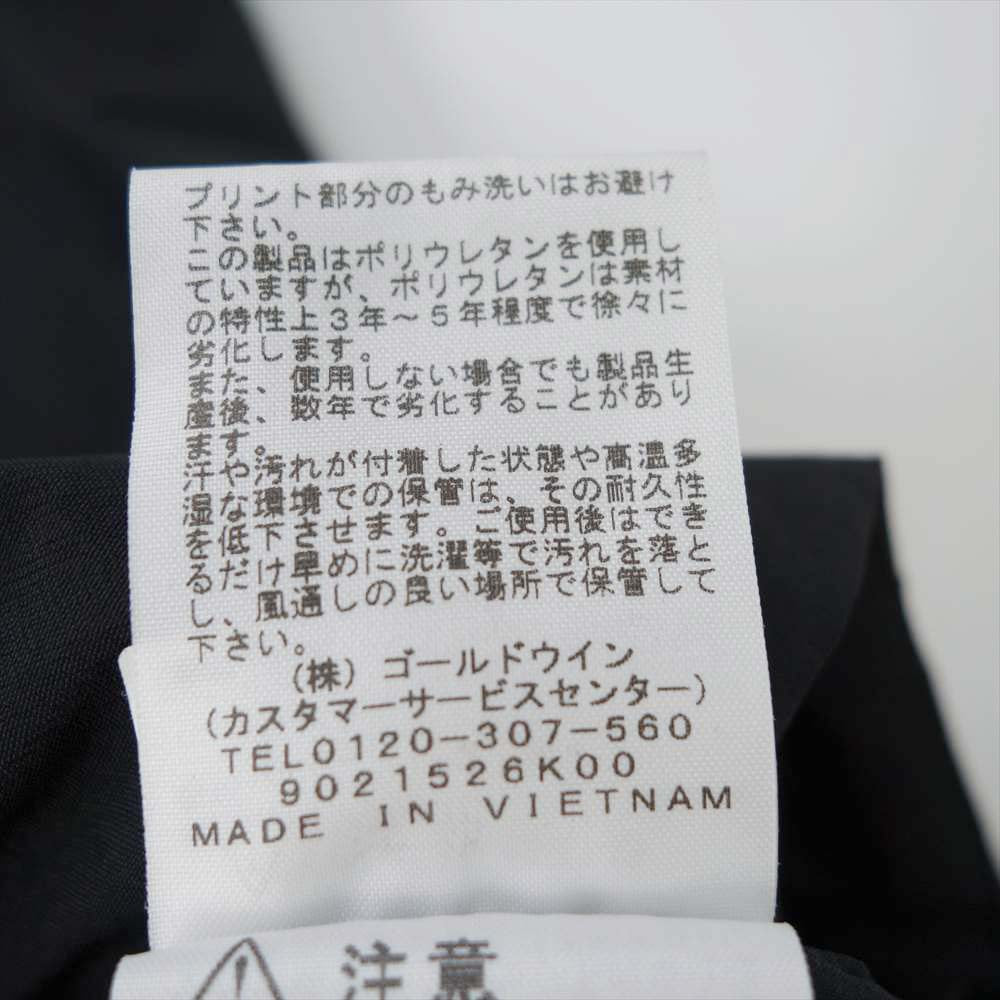 プリント部分のもみ洗いはお避け
下さい。
この製品はポリウレタンを使用し
ていますが、ポリウレタンは素材
の特性上3年～5年程度で徐々に
劣化します。
また、使用しない場合でも製品生
産後、数年で劣化することがあり
ます。
汗や汚れが付着した状態や高温多
湿な環境での保管は、その耐久性
を低下させます。ご使用後はでき
るだけ早めに洗濯等で汚れを落と
し、風通しの良い場所で保管して
下さい。
(株) ゴールドウイン
(カスタマーサービスセンター)
TEL0120-307-560
9021526K00
MADE IN VIETNAM
注意